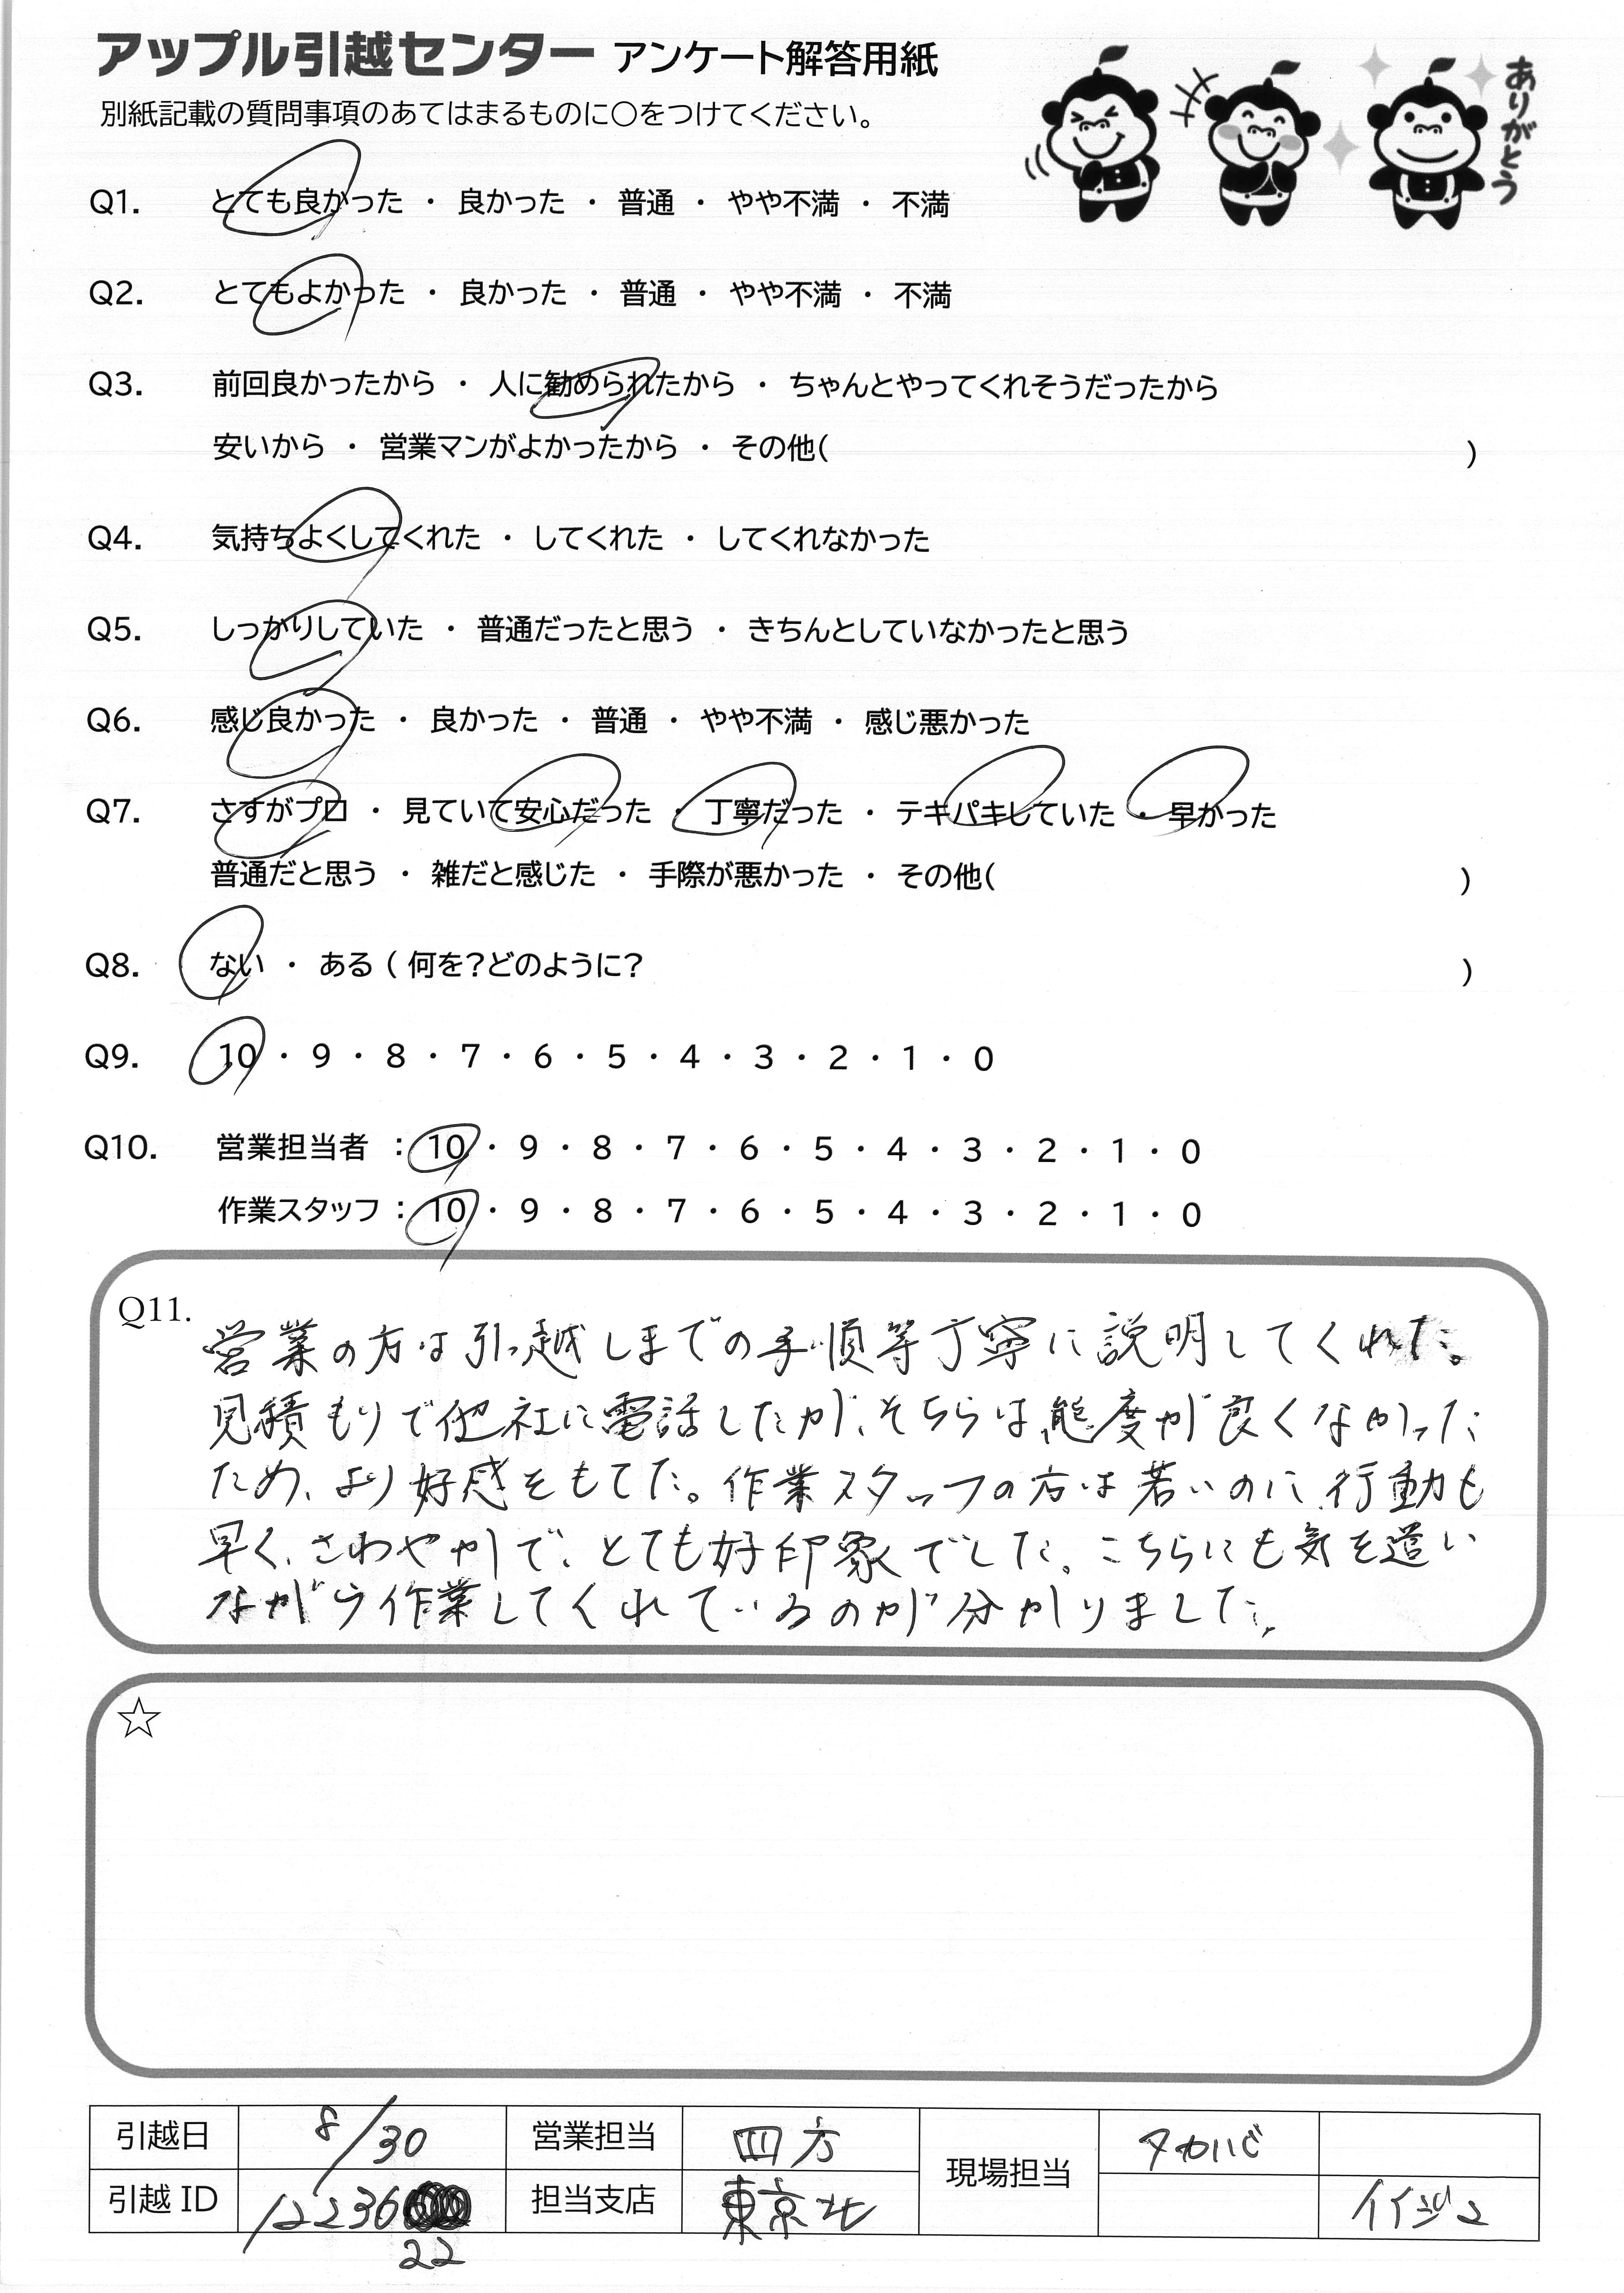 アップル引越センター アンケート解答用紙
別紙記載の質問事項のあてはまるものに○をつけてください。
ありがとう
Q1. とても良かった ・ 良かった ・ 普通 ・ やや不満 ・ 不満
Q2. とてもよかった ・ 良かった ・ 普通 ・ やや不満 ・ 不満
Q3. 前回良かったから ・ 人に勧められたから ・ ちゃんとやってくれそうだったから
安いから ・ 営業マンがよかったから ・ その他( )
Q4. 気持ちよくしてくれた ・ してくれた ・ してくれなかった
Q5. しっかりしていた ・ 普通だったと思う ・ きちんとしていなかったと思う
Q6. 感じ良かった ・ 良かった ・ 普通 ・ やや不満 ・ 感じ悪かった
Q7. さすがプロ ・ 見ていて安心だった ・ 丁寧だった ・ テキパキしていた ・ 早かった
普通だと思う ・ 雑だと感じた ・ 手際が悪かった ・ その他( )
Q8. ない ・ ある ( 何を?どのように? )
Q9. 10 ・ 9 ・ 8 ・ 7 ・ 6 ・ 5 ・ 4 ・ 3 ・ 2 ・ 1 ・ 0
Q10. 営業担当者 : 10 ・ 9 ・ 8 ・ 7 ・ 6 ・ 5 ・ 4 ・ 3 ・ 2 ・ 1 ・ 0
作業スタッフ : 10 ・ 9 ・ 8 ・ 7 ・ 6 ・ 5 ・ 4 ・ 3 ・ 2 ・ 1 ・ 0
Q11.
営業の方は引っ越しまでの手順等丁寧に説明してくれた。
見積もりで他社に電話したが、そちらは態度が良くなかった
ため、より好感をもてた。作業スタッフの方は若いのに、行動も
早く、さわやかで、とても好印象でした。こちらにも気を遣い
ながら作業してくれているのが分かりました。
☆
引越日 8/30 営業担当 四方 現場担当 タカハシ
引越 ID 12236 担当支店 東京北
22